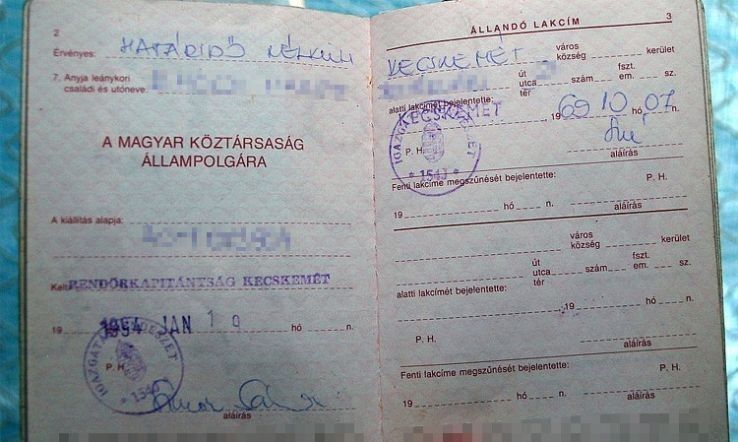 2
Érvényes: HATÁRIDŐ NÉLKÜLI
7. Anyja leánykori
családi és utóneve.
A MAGYAR KÖZTÁRSASÁG
ÁLLAMPOLGÁRA
A kiállítás alapja:
Kelt RENDŐRKAPITÁNYSÁG KECSKEMÉT
19 1994 JAN 10 hó n.
IGAZGATÁSRENDÉSZET
P. H.
1543
aláírás
ÁLLANDÓ LAKCÍM 3
KECSKEMÉT város kerület
község
út fszt.
utca szám em. sz.
tér
alatti lakcímét bejelentette:
KECSKEMÉT, 19 69 10 07
IGAZGATÁSRENDÉSZET
P. H.
1543
aláírás
Fenti lakcíme megszűnését bejelentette: P. H.
19 hó n.
aláírás
város kerület
község
út fszt.
utca szám em. sz.
tér
alatti lakcímét bejelentette:
, 19 hó n.
P. H.
aláírás
Fenti lakcíme megszűnését bejelentette: P. H.
19 hó n.
aláírás